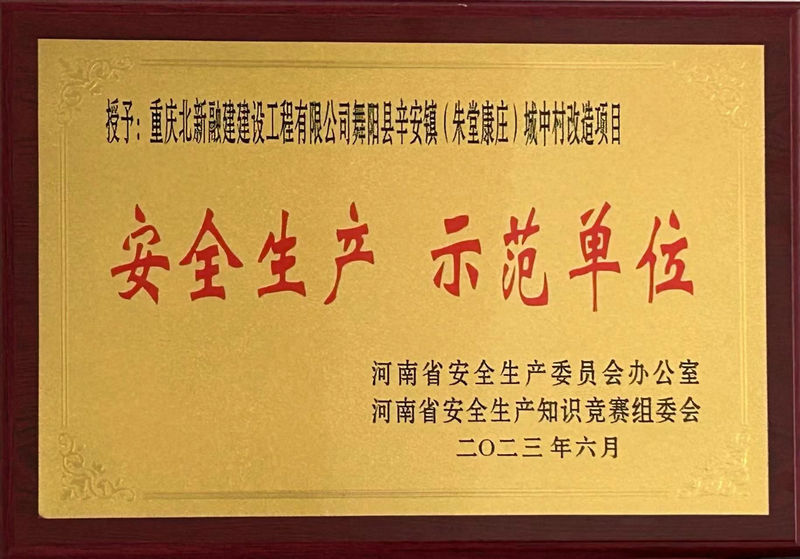 授予：重庆北新融建建设工程有限公司舞阳县辛安镇（朱堂康庄）城中村改造项目
安全生产 示范单位
河南省安全生产委员会办公室
河南省安全生产知识竞赛组委会
二〇二三年六月